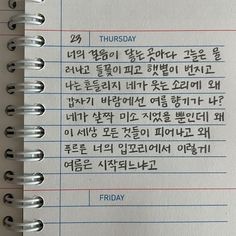 23 THURSDAY
너의 걸음이 닿는 곳마다 그늘은 물
러나고 들꽃이 피고 햇볕이 번지고
나는 흔들리지 네가 웃는 소리에 왜
갑자기 바람에선 여름 향기가 나?
네가 살짝 미소 지었을 뿐인데 왜
이 세상 모든 것들이 피어나고 왜
푸르른 너의 입꼬리에서 이렇게
여름은 시작되느냐고
FRIDAY